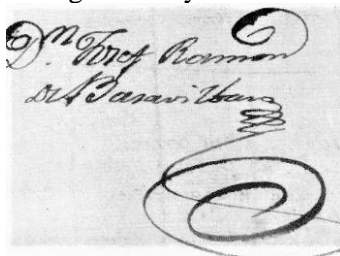 Dn. Josef Ramon
de Basavilbaso